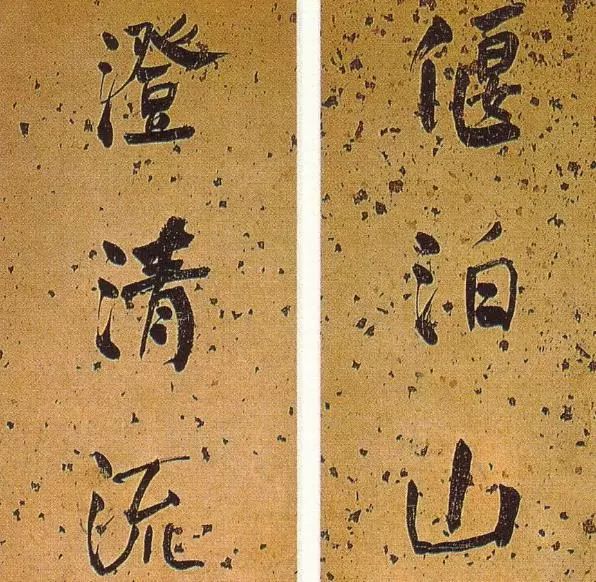 偃泊山
澄清流